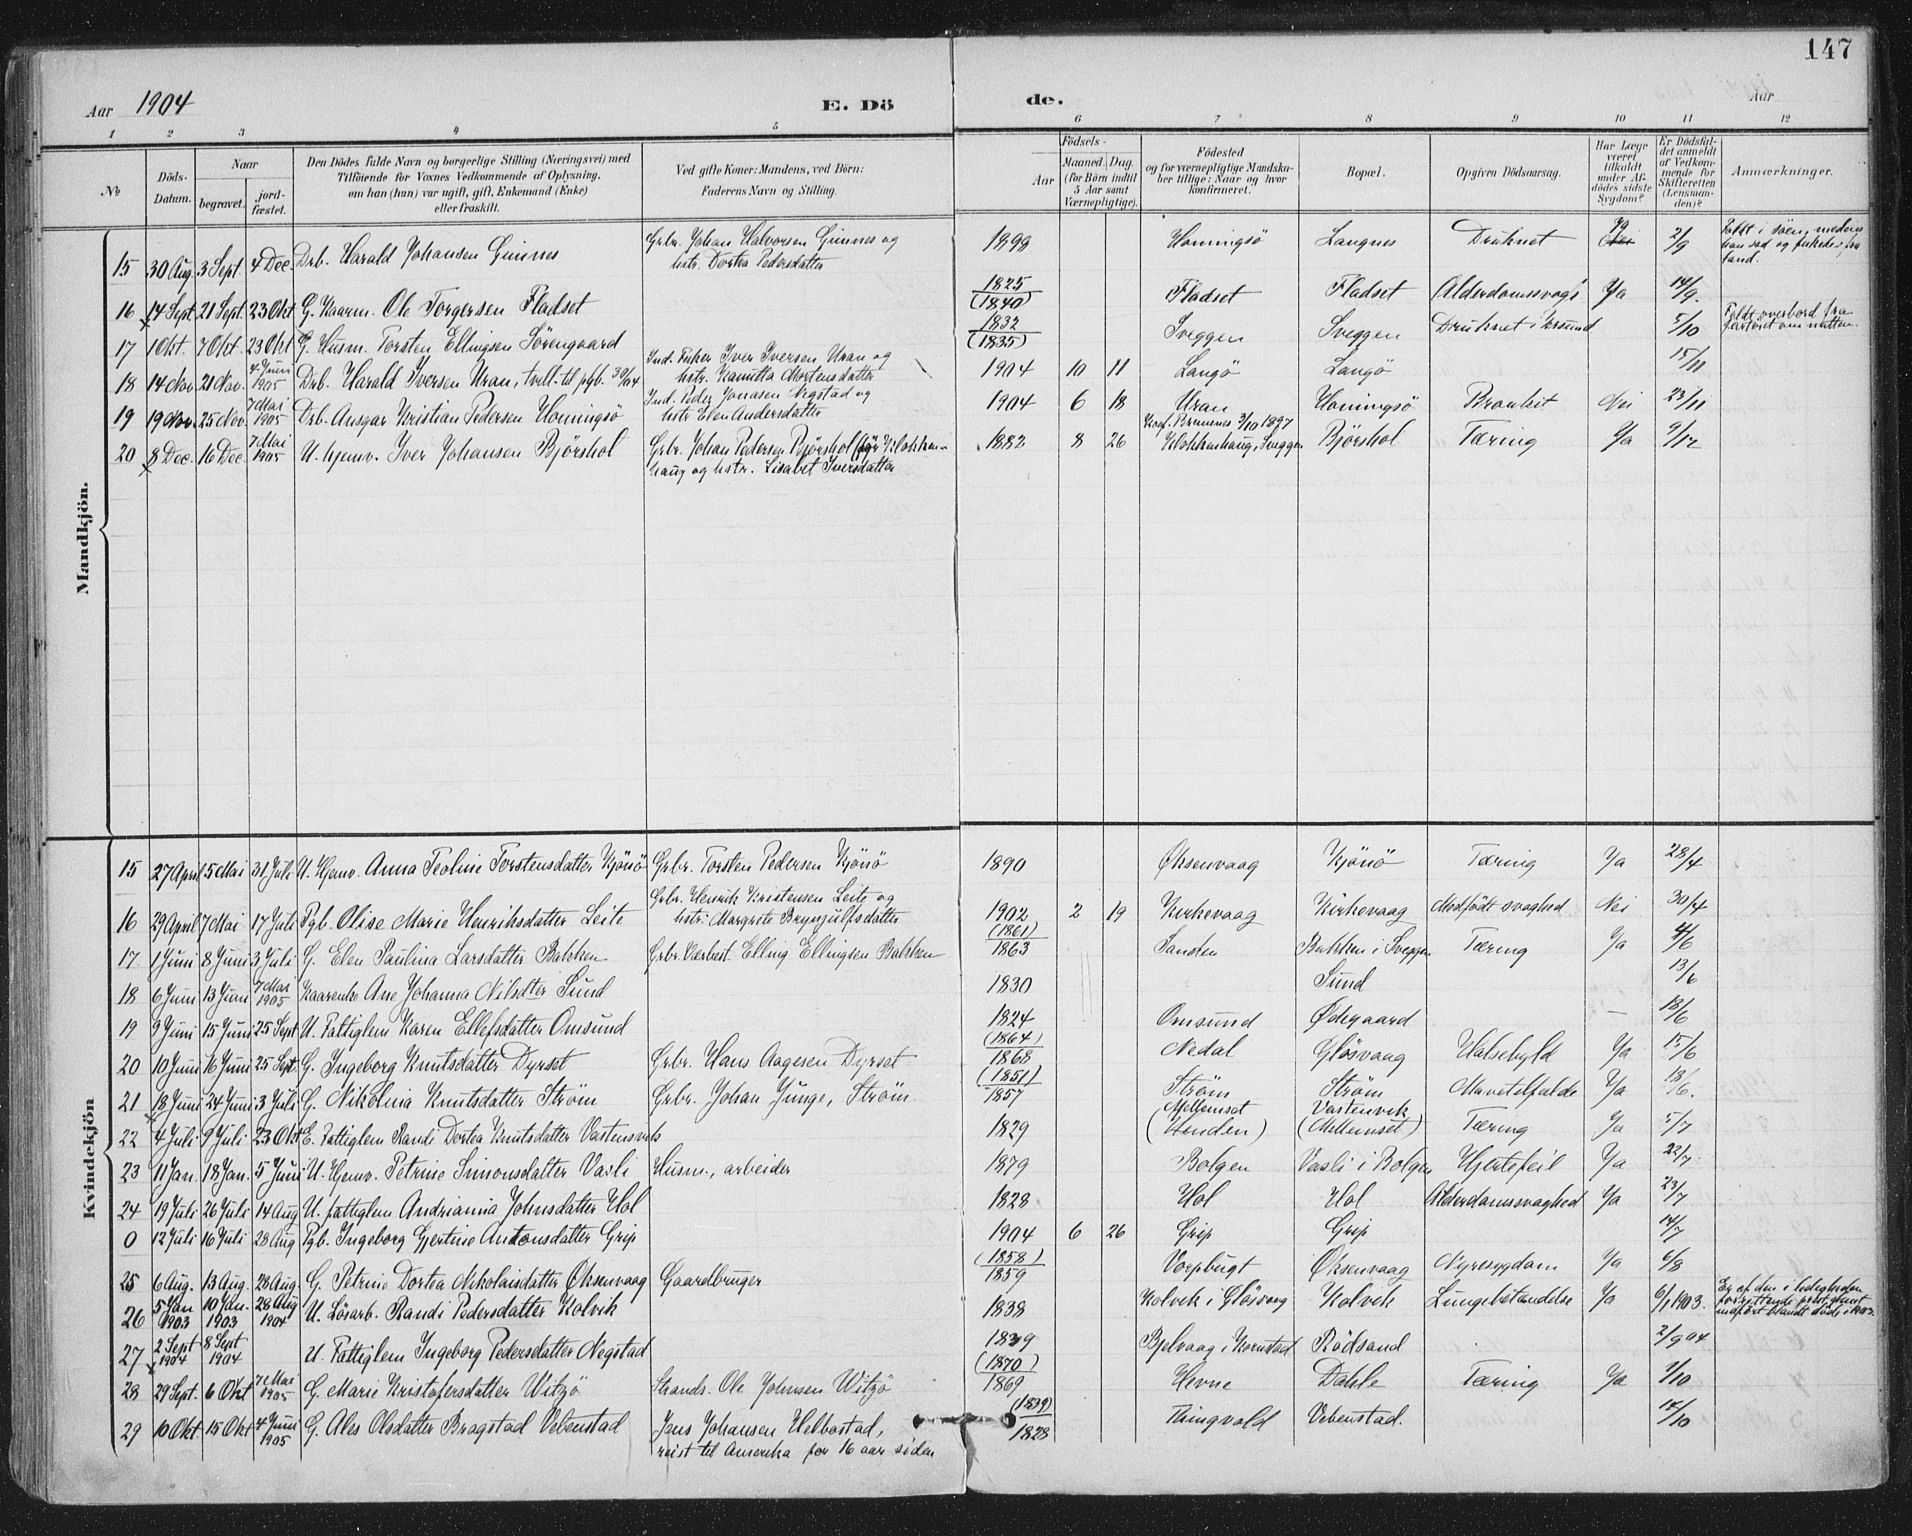 147
Aar 1904 E. Dö de. Aar
1 2 3 4 5 6 7 8 9 10 11 12
No Döds-Datum. Naar begravet. jordfæstet. Den Dödes fulde Navn og borgerlige Stilling (Næringsvei) med Tilföiende for Voxnes Vedkommende af Oplysning, om han (hun) var ugift, gift, Enkemand (Enke) eller fraskilt. Ved gifte Koner: Mandens, ved Börn: Faderens Navn og Stilling. Födsels- Aar Maaned. Dag. (for Börn indtil 5 Aar samt Værnepligtige). Födested og for værnepligtige Mandskaber tillige: Naar og hvor konfirmeret. Bopæl. Opgiven Dödsaarsag. Har Læge været tilkaldt under Afdödes sidste Sygdom? Er Dödsfaldet anmeldt af Vedkommende for Skifteretten (Lensmanden)? Anmærkninger.
Mandkjön.
15 30 Aug. 3 Sept. 4 Dec. Drb. Harald Johansen Gimnes Grbr. Johan Halvorsen Gimnes og hstr. Dortea Pedersdatter 1898 Honningsö Langnes Druknet Ja 2/9 Faldt i söen, medens han sad og fiskede, fra land.
16 14 Sept. 21 Sept. 23 Okt G. Kaarm. Ole Torgersen Fladset 1825 (1840) Fladset Fladset Alderdomssvagh. Ja 14/9.
17 1 Okt. 7 Okt. 23 Okt G. Husm. Torsten Ellingsen Sörengaard 1832 (1835) Sveggen Sveggen Druknet i Krsund 5/10 Faldt overbord fra fartöiet om natten.
18 14 Nov. 21 Nov. 4 Juni 1905 Drb. Harald Iversen Uran, tvill. til pgb. 30/04 Ind. Fisker Iver Iversen Uran og hstr. Kanutta Mortensdatter 1904 10 11 Langö Langö 15/11
19 19 Nov. 25 Nov. 7 Mai 1905 Drb. Ansgar Kristian Pedersen Honningsö Ind. Peder Jonasen Negstad og hstr Elen Andersdatter 1904 6 18 Uran Honningsö Bronkit Nei 23/11
20 8 Dec. 16 Dec 7 Mai 1905 U. hjemv. Iver Johansen Björshol Grbr. Johan Pedersen Bjørshol (før Klokkerhaug og hstr. Lisabet Iversdatter 1882 8 26 Konf. Bremsnes 3/10 1897 Klokkerhaug, Sveggen Bjørshol Tæring Ja 9/12
Kvindekjön
15 27 April 5 Mai 31 Juli U. Hjemv. Anna Teoline Torstensdatter Kjönö Grbr. Torsten Pedersen Kjönö 1890 Øksenvaag Kjönö Tæring Ja 28/4
16 29 April 7 Mai 17 Juli Pgb. Olise Marie Henriksdatter Leite Grbr. Henrik Kristensen Leite og hstr. Margrete Brynjulfsdatter 1902 2 19 Kirkevaag Kirkevaag Medfödt svaghed Nei 30/4
17 1 Juni 8 Juni 3 Juli G. Elen Paulina Larsdatter Bakken Grbr. Værbest. Elling Ellingsen Bakken (1861) 1863 Sanden Bakken i Sveggen Tæring Ja 4/6
18 6 Juni 13 Juni 7 Mai 1905 Kaarenke Ane Johanna Nilsdtter Sund 1830 Sund 13/6
19 9 Juni 15 Juni 25 Sept U. Fattiglem Karen Ellefsdatter Omsund 1824 Omsund Ødegaard — 18/6
20 10 Juni 16 Juni 25 Sept. G. Ingeborg Knutsdatter Dyrset Grbr. Hans Aagesen Dyrset (1864) 1868 Nedal Glösvaag Halsebyld Ja 15/6
21 18 Juni 24 Juni 3 Juli G. Nikolina Knutsdatter Ström Grbr. Johan Junge, Ström. (1851) 1857 Ström Ström Mavetilfælde Ja 18/6.
22 4 Juli 9 Juli 23 Okt E. Fattiglem Randi Dortea Knutsdatter Vastensvik 1829 Mellemset (Henden) Vastenvik (Mellemset) Tæring Ja 5/7
23 11 Jan. 18 Jan. 5 Juni U. Hjemv. Petrine Simonsdatter Vasli Husm., arbeider 1879 Bolgen Vasli i Bolgen Hjertefeil Ja 22/7
24 19 Juli 26 Juli 14 Aug U. fattiglem Andrianna Johnsdatter Hol 1828 Hol Hol Alderdomssvaghed Ja 23/7
0 12 Juli 16 Juli 28 Aug Pgb. Ingeborg Gjertine Antonsdatter Grip 1904 6 26 Grip Grip 14/7
25 6 Aug. 13 Aug. 28 Aug G. Petrine Dortea Nikolaisdatter Øksenvaag Gaardbruger (1858) 1859 Vorpbugt Øksenvaag Nyresygdom Ja 6/8
26 5 Jan 1903 10 Jan. 1903 28 Aug 1904 U. Lösarb. Randi Pedersdatter Kolvik 1838 Kolvik i Glösvaag Kolvik Lungebetændelse Ja 6/1 1903.
27 2 Sept 1904 8 Sept 1904 U. Fattiglem Ingeborg Pedersdatter Negstad 1839 Bjelvaag i Kornstad Rödsand 2/9 04
28 29 Sept. 6 Okt 7 Mai 1905 G. Marie Kristofersdatter Witzö Strands. Ole Johnsen Witzö (1870) 1869 Hevne Dahle Tæring Ja 7/10
29 10 Okt. 15 Okt 4 Juni 1905 G. Ales Olsdatter Bragstad Vebenstad Jens Johansen Helbostad, reist til Amerika for 16 aar siden (1839) 1828 Thingvold Vebenstad. 14/10